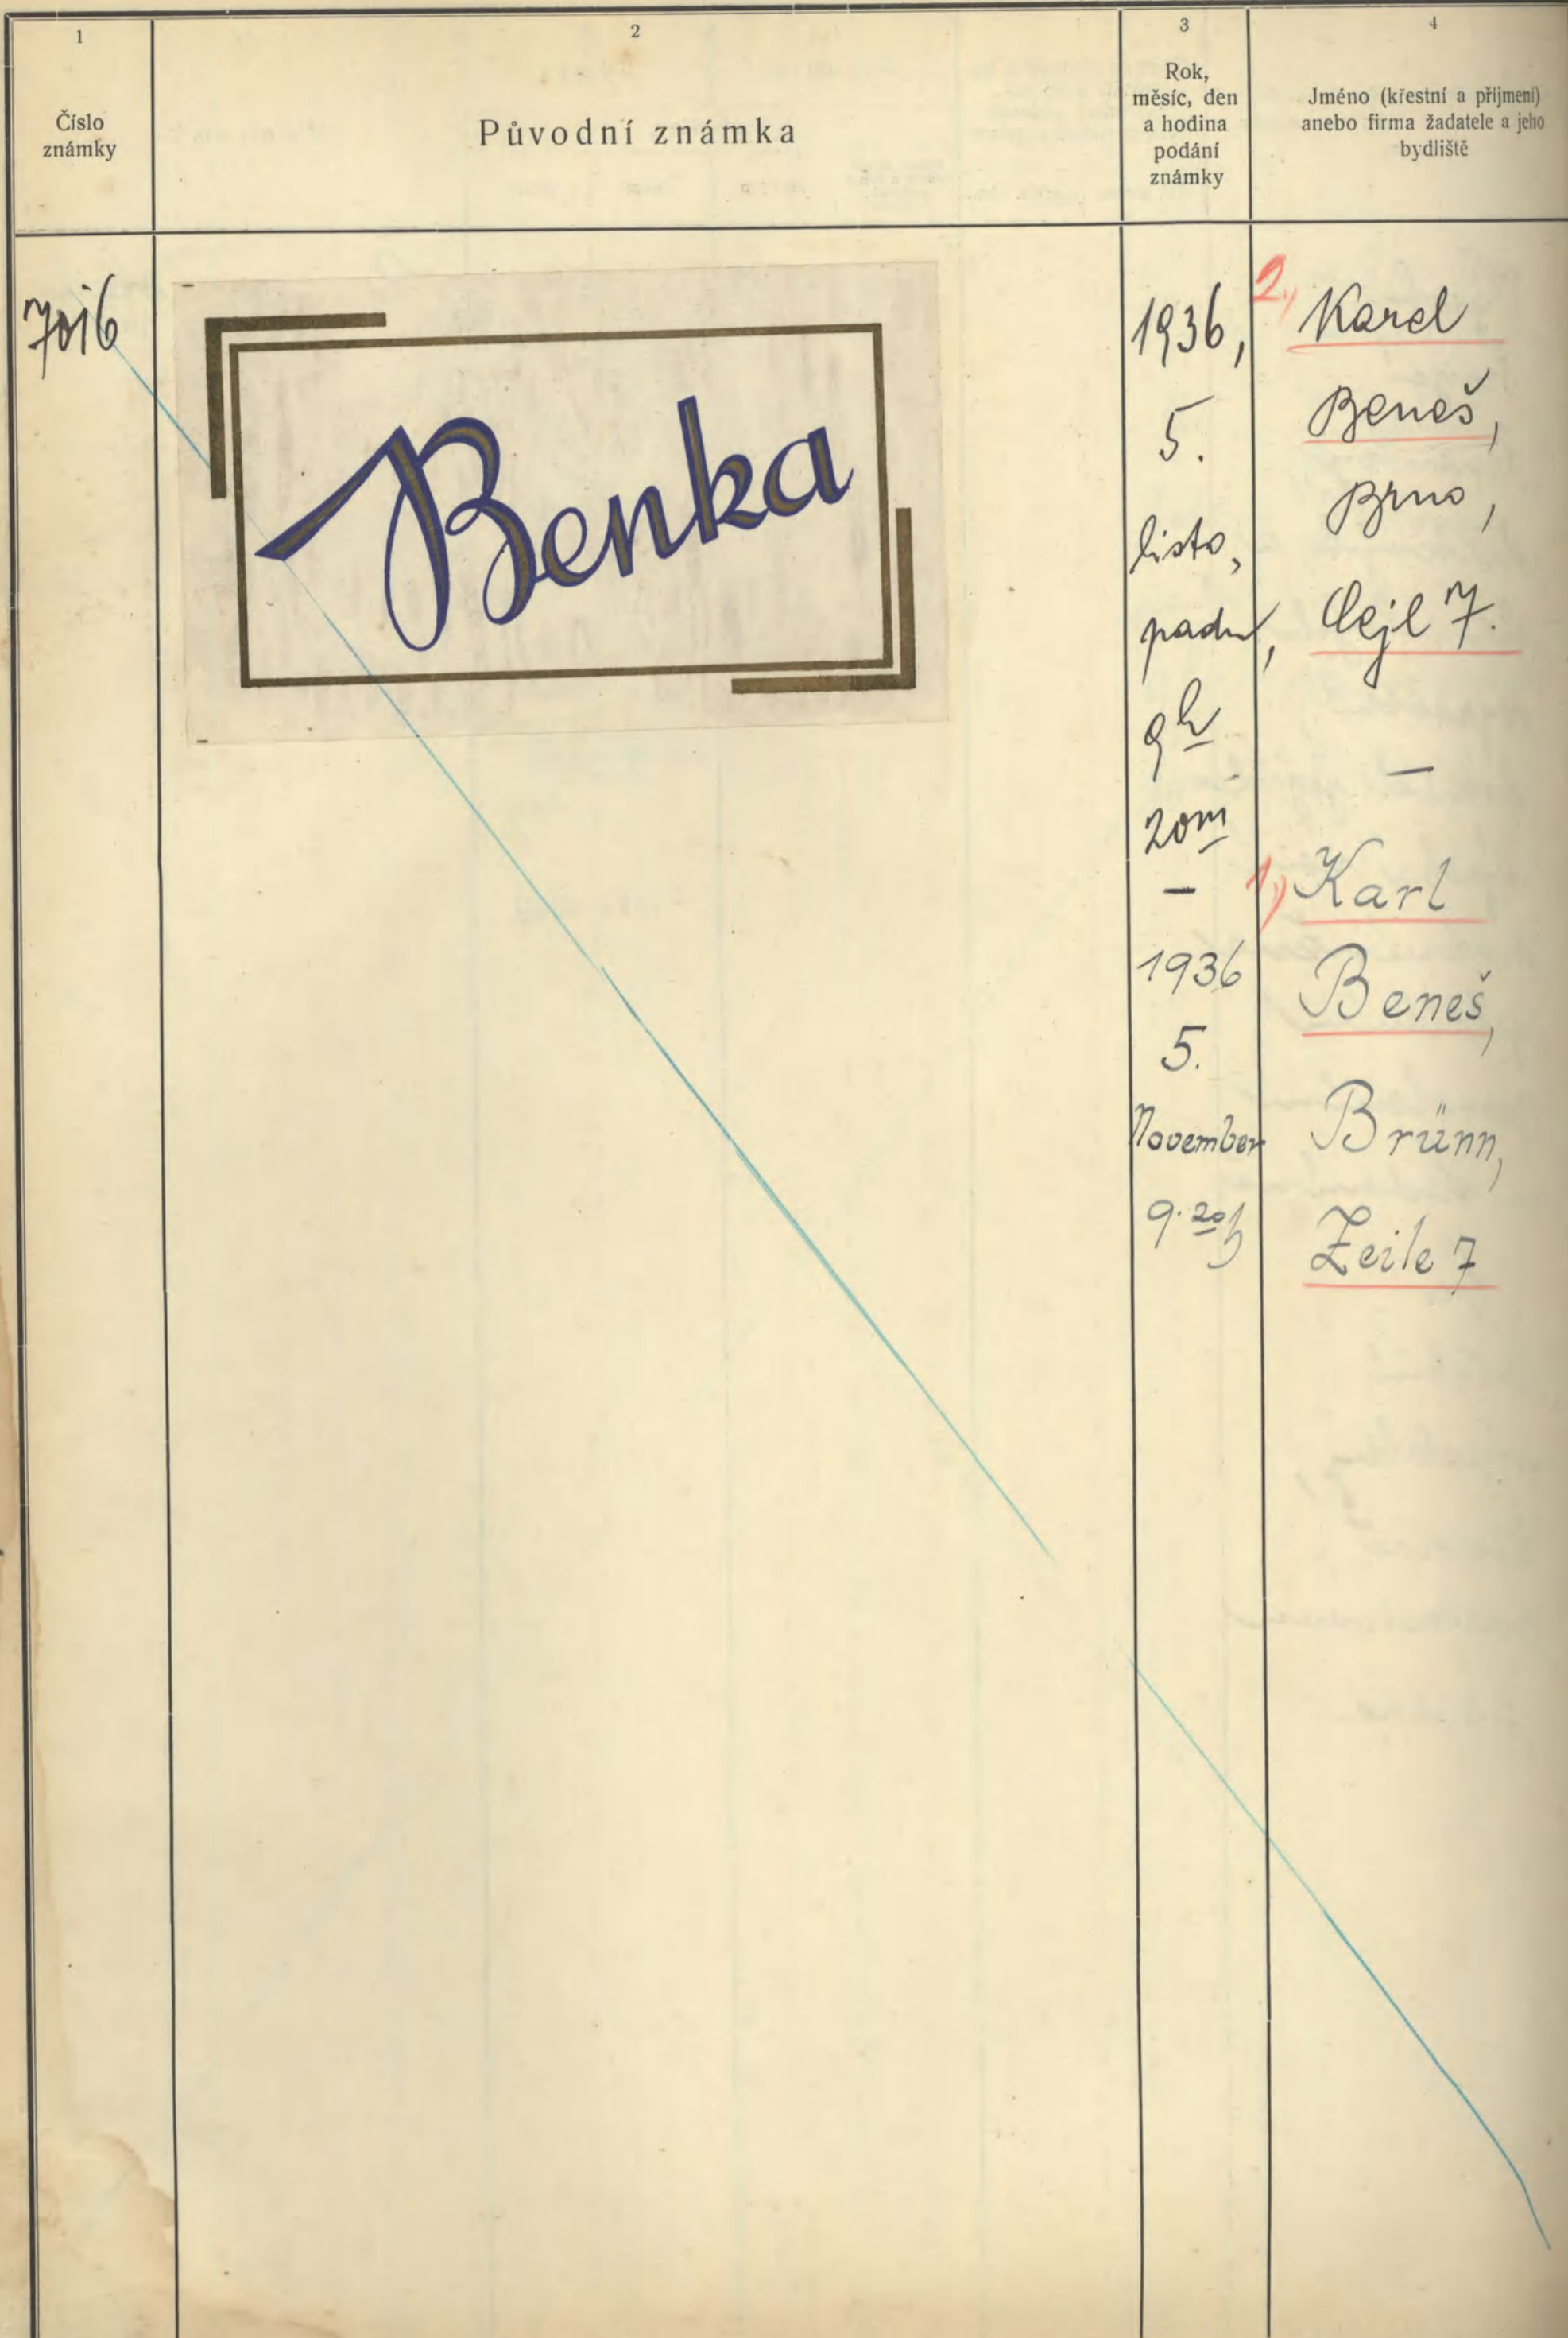 1
Číslo
známky
2
Původní známka
3
Rok,
měsíc, den
a hodina
podání
známky
4
Jméno (křestní a přijmení)
anebo firma žadatele a jeho
bydliště
7016
Benka
1936,
5.
listo,
padu,
9h
20m
—
1936
5.
November
9.20h
2.,
Karel
Beneš,
Brno,
Cejl 7.
—
1,)
Karl
Beneš,
Brünn,
Zeile 7